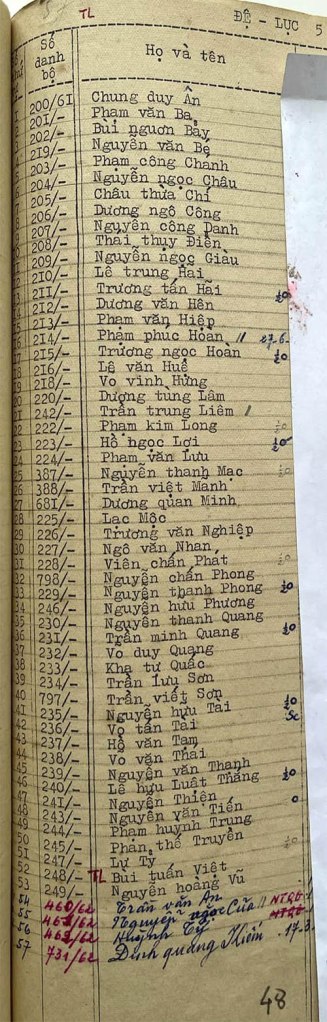 TL
ĐỆ - LỤC 5
Số danh bộ Họ và tên
200/61 Chung duy Ân
201/- Phạm văn Ba
202/- Bùi nguơn Bảy
219/- Nguyễn văn Bẹ
203/- Phạm công Chanh
204/- Nguyễn ngọc Châu
205/- Châu thừa Chí
206/- Dương ngô Công
207/- Nguyễn công Danh
208/- Thái thụy Điền
209/- Nguyễn ngọc Giàu
210/- Lê trung Hai
211/- Trương tấn Hải
212/- Dương văn Hên
213/- Phạm văn Hiệp
214/- Phạm phúc Hoàn // 27.6
215/- Trương ngọc Hoàn
216/- Lê văn Huế
218/- Vo vinh Hưng
220/- Dương tùng Lâm
242/- Trần trung Liêm /
222/- Phạm kim Long
223/- Hồ ngọc Lợi
224/- Phạm văn Lưu
387/- Nguyễn thanh Mạc
388/- Trần việt Manh
681/- Dương quan Minh
225/- Lạc Mộc
226/- Trương văn Nghiệp
227/- Ngô văn Nhan
228/- Viên chấn Phát
798/- Nguyễn chấn Phong
229/- Nguyễn thanh Phong
246/- Nguyễn hưu Phương
230/- Nguyễn thanh Quang
231/- Trần minh Quang
232/- Vo duy Quang
233/- Kha tư Quấc
234/- Trần lưu Sơn
797/- Trần viết Sơn
235/- Nguyễn hưu Tai
236/- Vo tấn Tài
237/- Hồ văn Tam
238/- Vo văn Thái
239/- Nguyễn văn Thanh
240/- Lê hưu Luật Thắng
241/- Nguyễn Thiện
243/- Nguyễn văn Tiến
244/- Phạm huỳnh Trung
245/- Phan thế Truyền
247/- Lự Tỷ
248/- TL Bùi tuấn Việt
249/- Nguyễn hoàng Vũ
54 460/62 Trần văn An
55 Nguyễn ngọc Của //
56 Huỳnh Tỷ
57 731/62 Đinh quang Kiểm 17-3
48